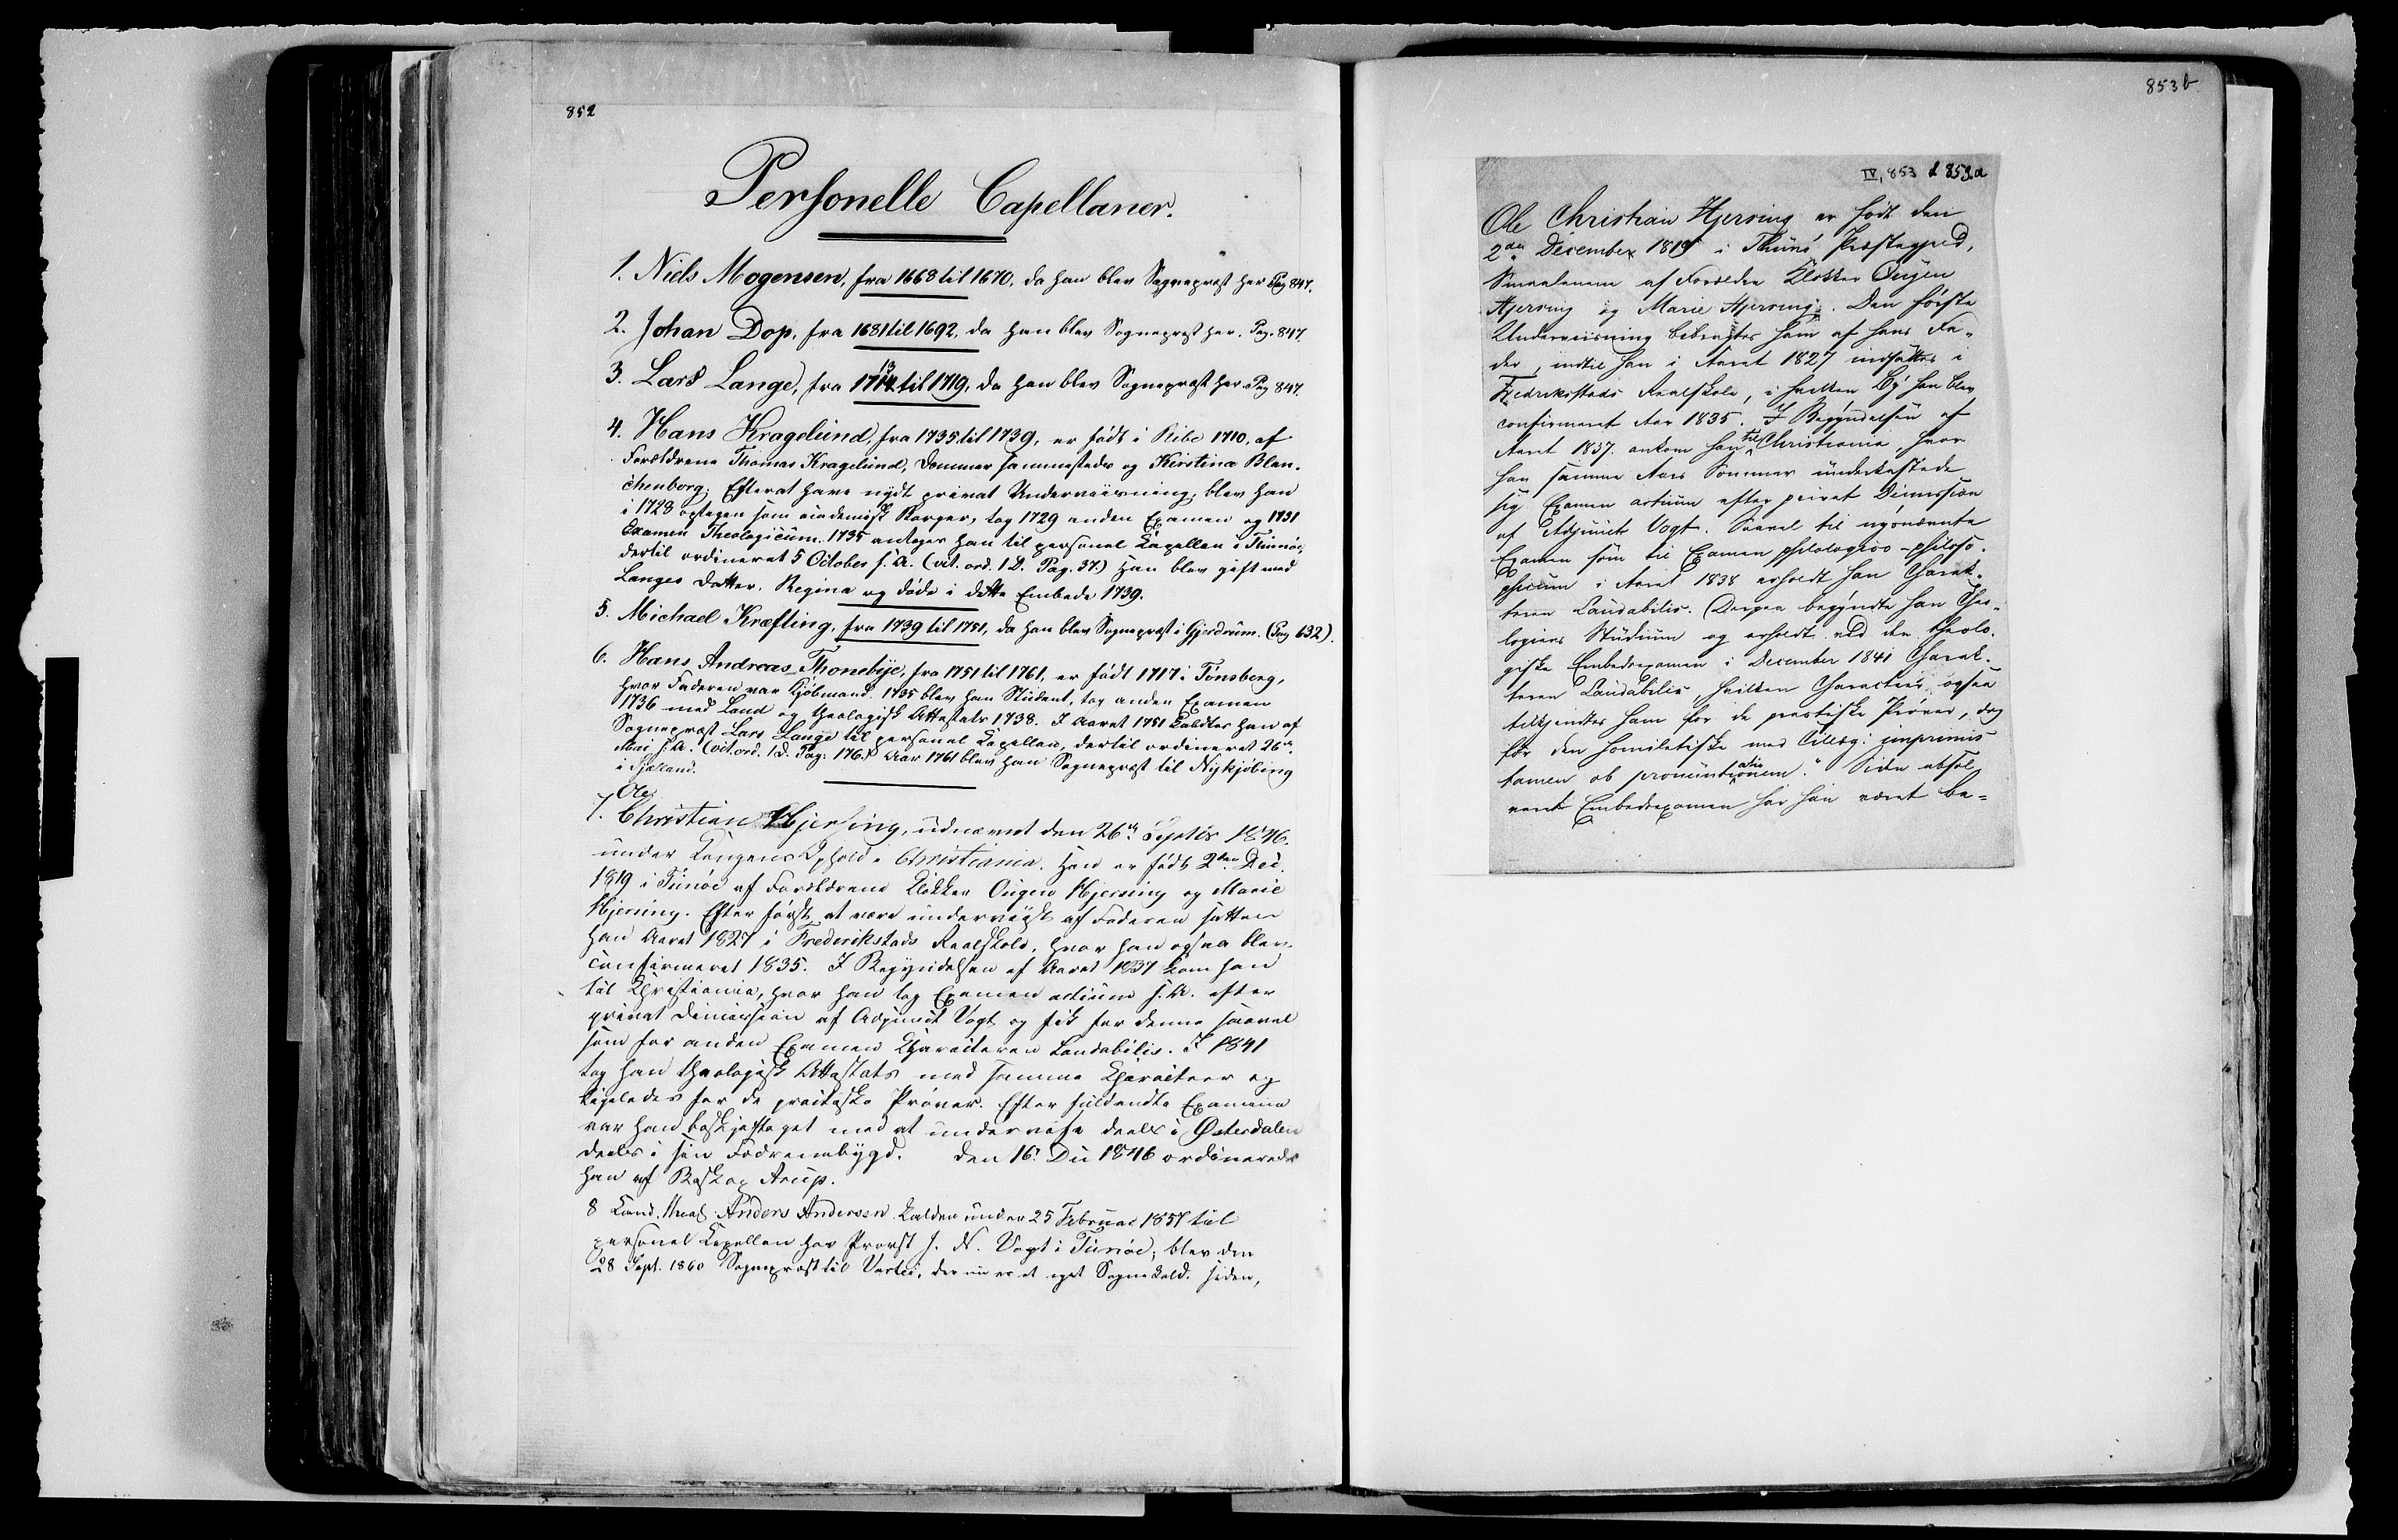 852
Personelle Capellaner.
1. Niels Mogensen, fra 1668 til 1670, da han blev Sognepræst her Pag 847.
2. Johan Dop, fra 1681 til 1692, da han blev Sognepræst her. Pag. 847.
3. Lars Lange, fra 1713 til 1719, da han blev Sognepræst her Pag 847.
4. Hans Kragelund, fra 1735 til 1739, er født i Ribe 1710, af
Forældrene Thomas Kragelund, Dommer sammesteds og Kirstina Blan-
chenborg. Efterat have nydt privat Underviisning, blev han
i 1728 optagen som academisk Borger, tog 1729 anden Examen og 1731
Examen Theologicum. 1735 antoges han til personel Kapellan i Thunøe,
dertil ordineret 5 October s. A. (vit. ord. 1 D. Pag. 37.) Han blev gift med
Langes Datter, Regina og døde i dette Embede 1739.
5. Michael Kræfting, fra 1739 til 1751, da han blev Sognepræst i Gjerdrum. (Pag 632).
6. Hans Andreas Thonebye, fra 1751 til 1761, er født 1717 i Tønsberg,
hvor Faderen var Kjöbmand. 1735 blev han Student, tog anden Examen
1736 med Laud og theologisk Attestats 1738. I Aaret 1751 kaldtes han af
Sognepræst Lars Lange til personel Kapellan, dertil ordineret 26de
Mai s. A. (vit. ord. 1 D. Pag. 176.) Aar 1761 blev han Sognepræst til Nykjöbing
i Sjælland.
Ole
7. Christian Hjersing, udnævnt den 26de Septbr 1846.
under Kongens Ophold i Christiania. Han er født 2den Dec.
1819 i Tunöe af Forældrene Klokker Ougen Hjersing og Marie
Hjersing. Efter först at være underviist af Faderen sattes
han Aaret 1827 i Frederikstads Realskole, hvor han ogsaa blev
confirmeret 1835. I Begyndelsen af Aaret 1837 kom han
til Christiania, hvor han tog Examen artium s. A. efter
privat Dimission af Adjunct Vogt og fik for denne saavel
som for anden Examen Charakteren Laudabilis. I 1841
tog han theologisk Attestats med samme Charakteer og
ligeledes for de practiske Pröver. Efter fuldendte Examina
var han beskjæftiget med at undervise deels i Østerdalen
deels i sin Födrenebygd. Den 16. Dec 1846 ordineredes
han af Biskop Arup.
8 Cand. theol. Anders Andersen kalden under 25 Februar 1857 til
personel Kapellan hos Provst J. N. Vogt i Tunöe; blev den
28 Sept. 1860 Sognepræst til Vartei, der nu er et eget Sognekald. siden,
853b
IV, 853 d 852a
Ole Christian Hjersing er født den
2den December 1819 i Thunö Præstegjeld,
Smaalenene af Forældre Klokker Ougen
Hjersing og Marie Hjersing. Den förste
Underviisning bibragtes ham af hans Fa-
der, indtil han i Aaret 1827 indsattes i
Fredriksstads Realskole, i hvilken By han blev
confirmeret Aar 1835. I Begyndelsen af
Aaret 1837 ankom han til Christiania, hvor
han samme Aars Sommer underkastede
sig Examen artium efter privat Dimission
af Adjunct Vogt. Saavel til nysnævnte
Examen som til Examen philologico-philoso-
phicum i Aaret 1838 erholdt han Charak-
teren Laudabilis. Derpaa begyndte han Theo-
logiens Studium og erholdt ved den theolo-
giske Embedsexamen i December 1841 Charak-
teren Laudabilis, hvilken Characteer ogsaa
tilkjendtes ham for de practiske Pröver, dog
for den homiletiske med Tillæg: imprimis
tamen ob pronuntiationem." Siden absol-
veret Embedsexamen har han været be-